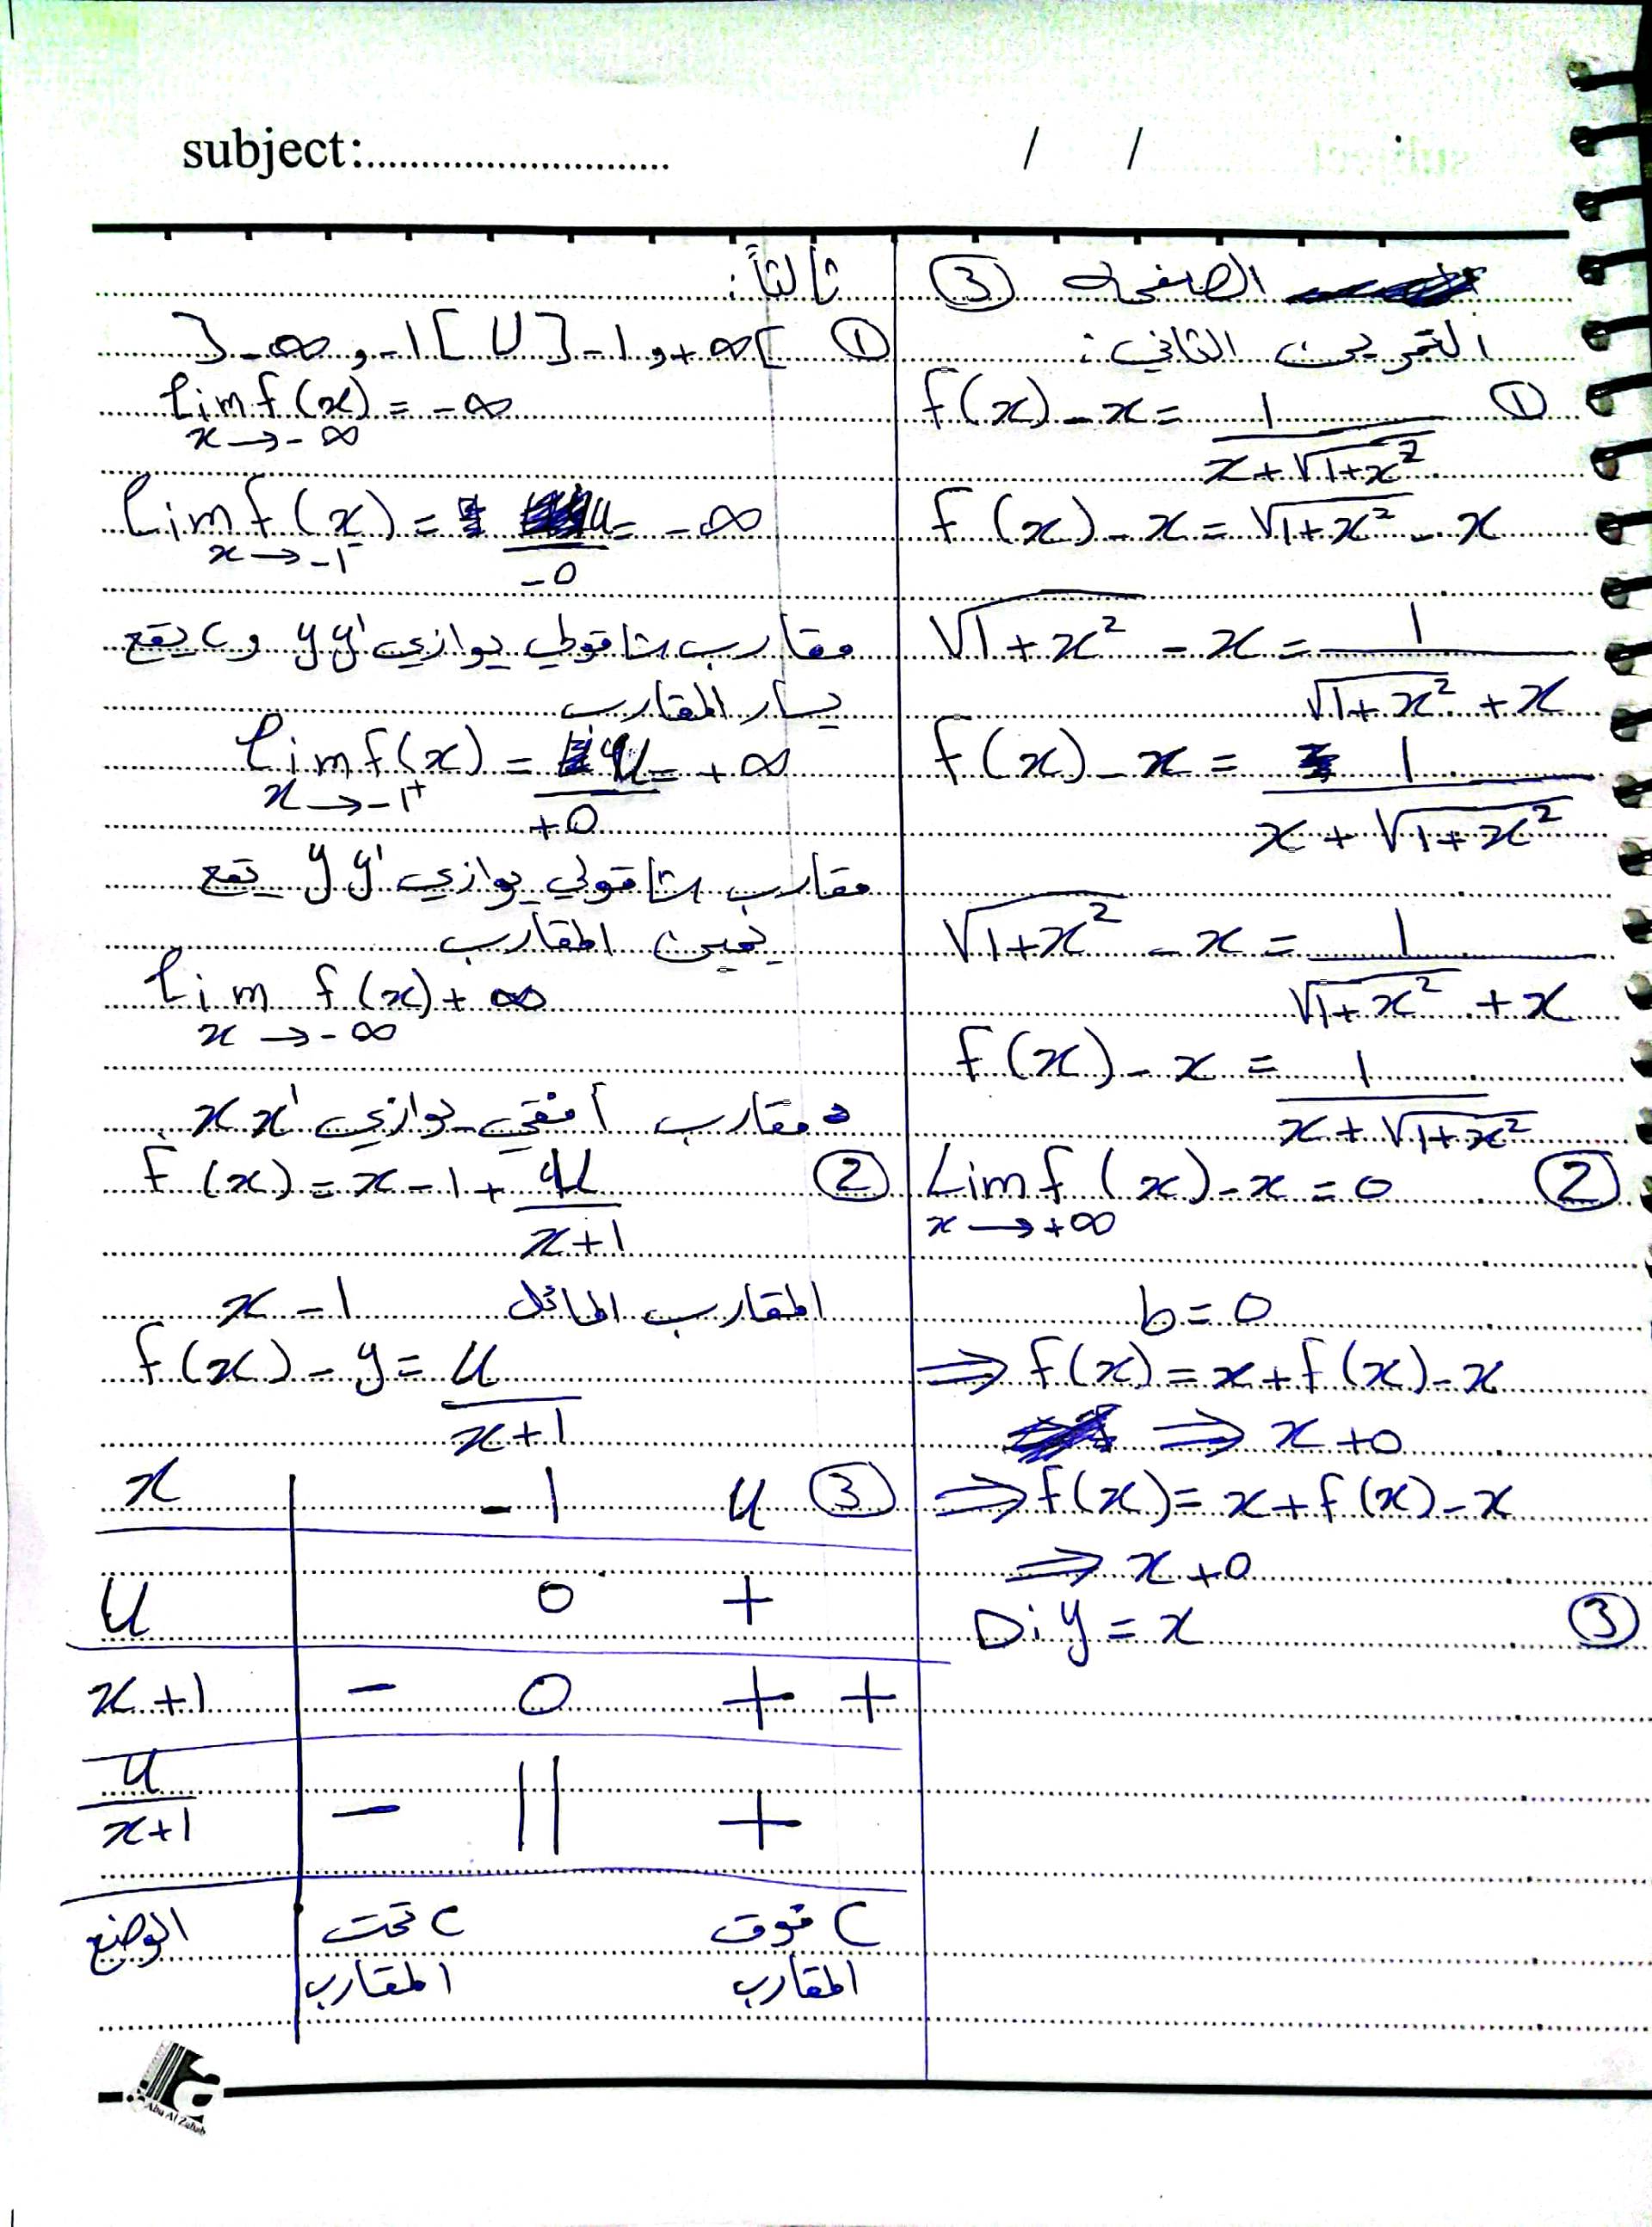 subject:............................ / /
الصفحة ③
التمرين الثاني:
① f(x) - x = 1 / (x + √(1+x²))
f(x) - x = √(1+x²) - x
√(1+x²) - x = 1 / (√(1+x²) + x)
f(x) - x = 1 / (x + √(1+x²))
√(1+x²) - x = 1 / (√(1+x²) + x)
f(x) - x = 1 / (x + √(1+x²))
② Lim f(x) - x = 0
x → +∞
b = 0
⇒ f(x) = x + f(x) - x
⇒ x + 0
⇒ f(x) = x + f(x) - x
⇒ x + 0
③ D: y = x
ثالثاً:
① ]-∞, -1[ U ]-1, +∞[
lim f(x) = -∞
x → -∞
lim f(x) = 4 / -0 = -∞
x → -1⁻
مقارب شاقولي يوازي yy' و C يقع
يسار المقارب
lim f(x) = 4 / +0 = +∞
x → -1⁺
مقارب شاقولي يوازي yy' تقع
يمين المقارب
lim f(x) + ∞
x → -∞
مقارب أفقي يوازي xx'
② f(x) = x - 1 + 4 / (x+1)
المقارب المائل x - 1
f(x) - y = 4 / (x+1)
③ x | -1 4
4 | 0 +
x+1 | - 0 + +
4 / (x+1) | - || +
الوضع | C تحت المقارب C فوق المقارب
Abu Al Zahab